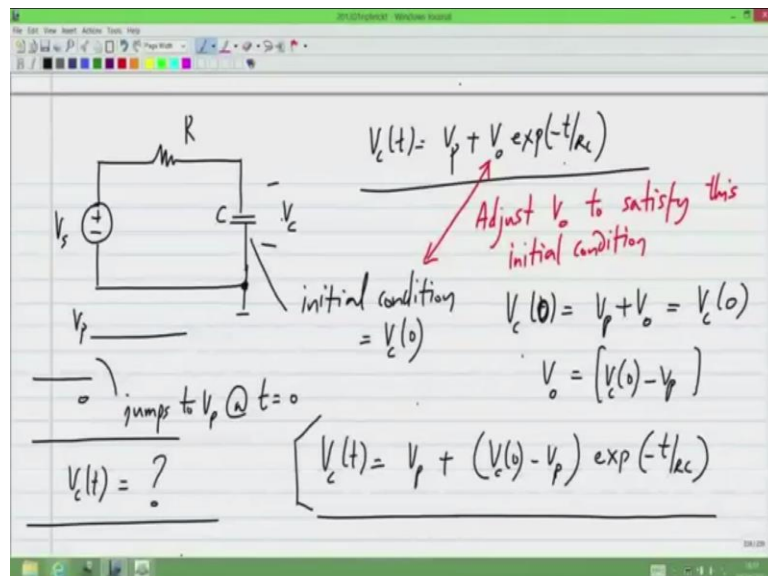 Windows Journal
File Edit View Insert Actions Tools Help
Page Width
R
V_s
+
−
C
V_c
V_c(t) = V_p + V_o exp(-t/RC)
Adjust V_o to satisfy this
initial condition
initial condition
= V_c(0)
V_c(0) = V_p + V_o = V_c(0)
V_o = [V_c(0) - V_p]
V_p
0
jumps to V_p @ t=0
V_c(t) = ?
V_c(t) = V_p + (V_c(0) - V_p) exp(-t/RC)